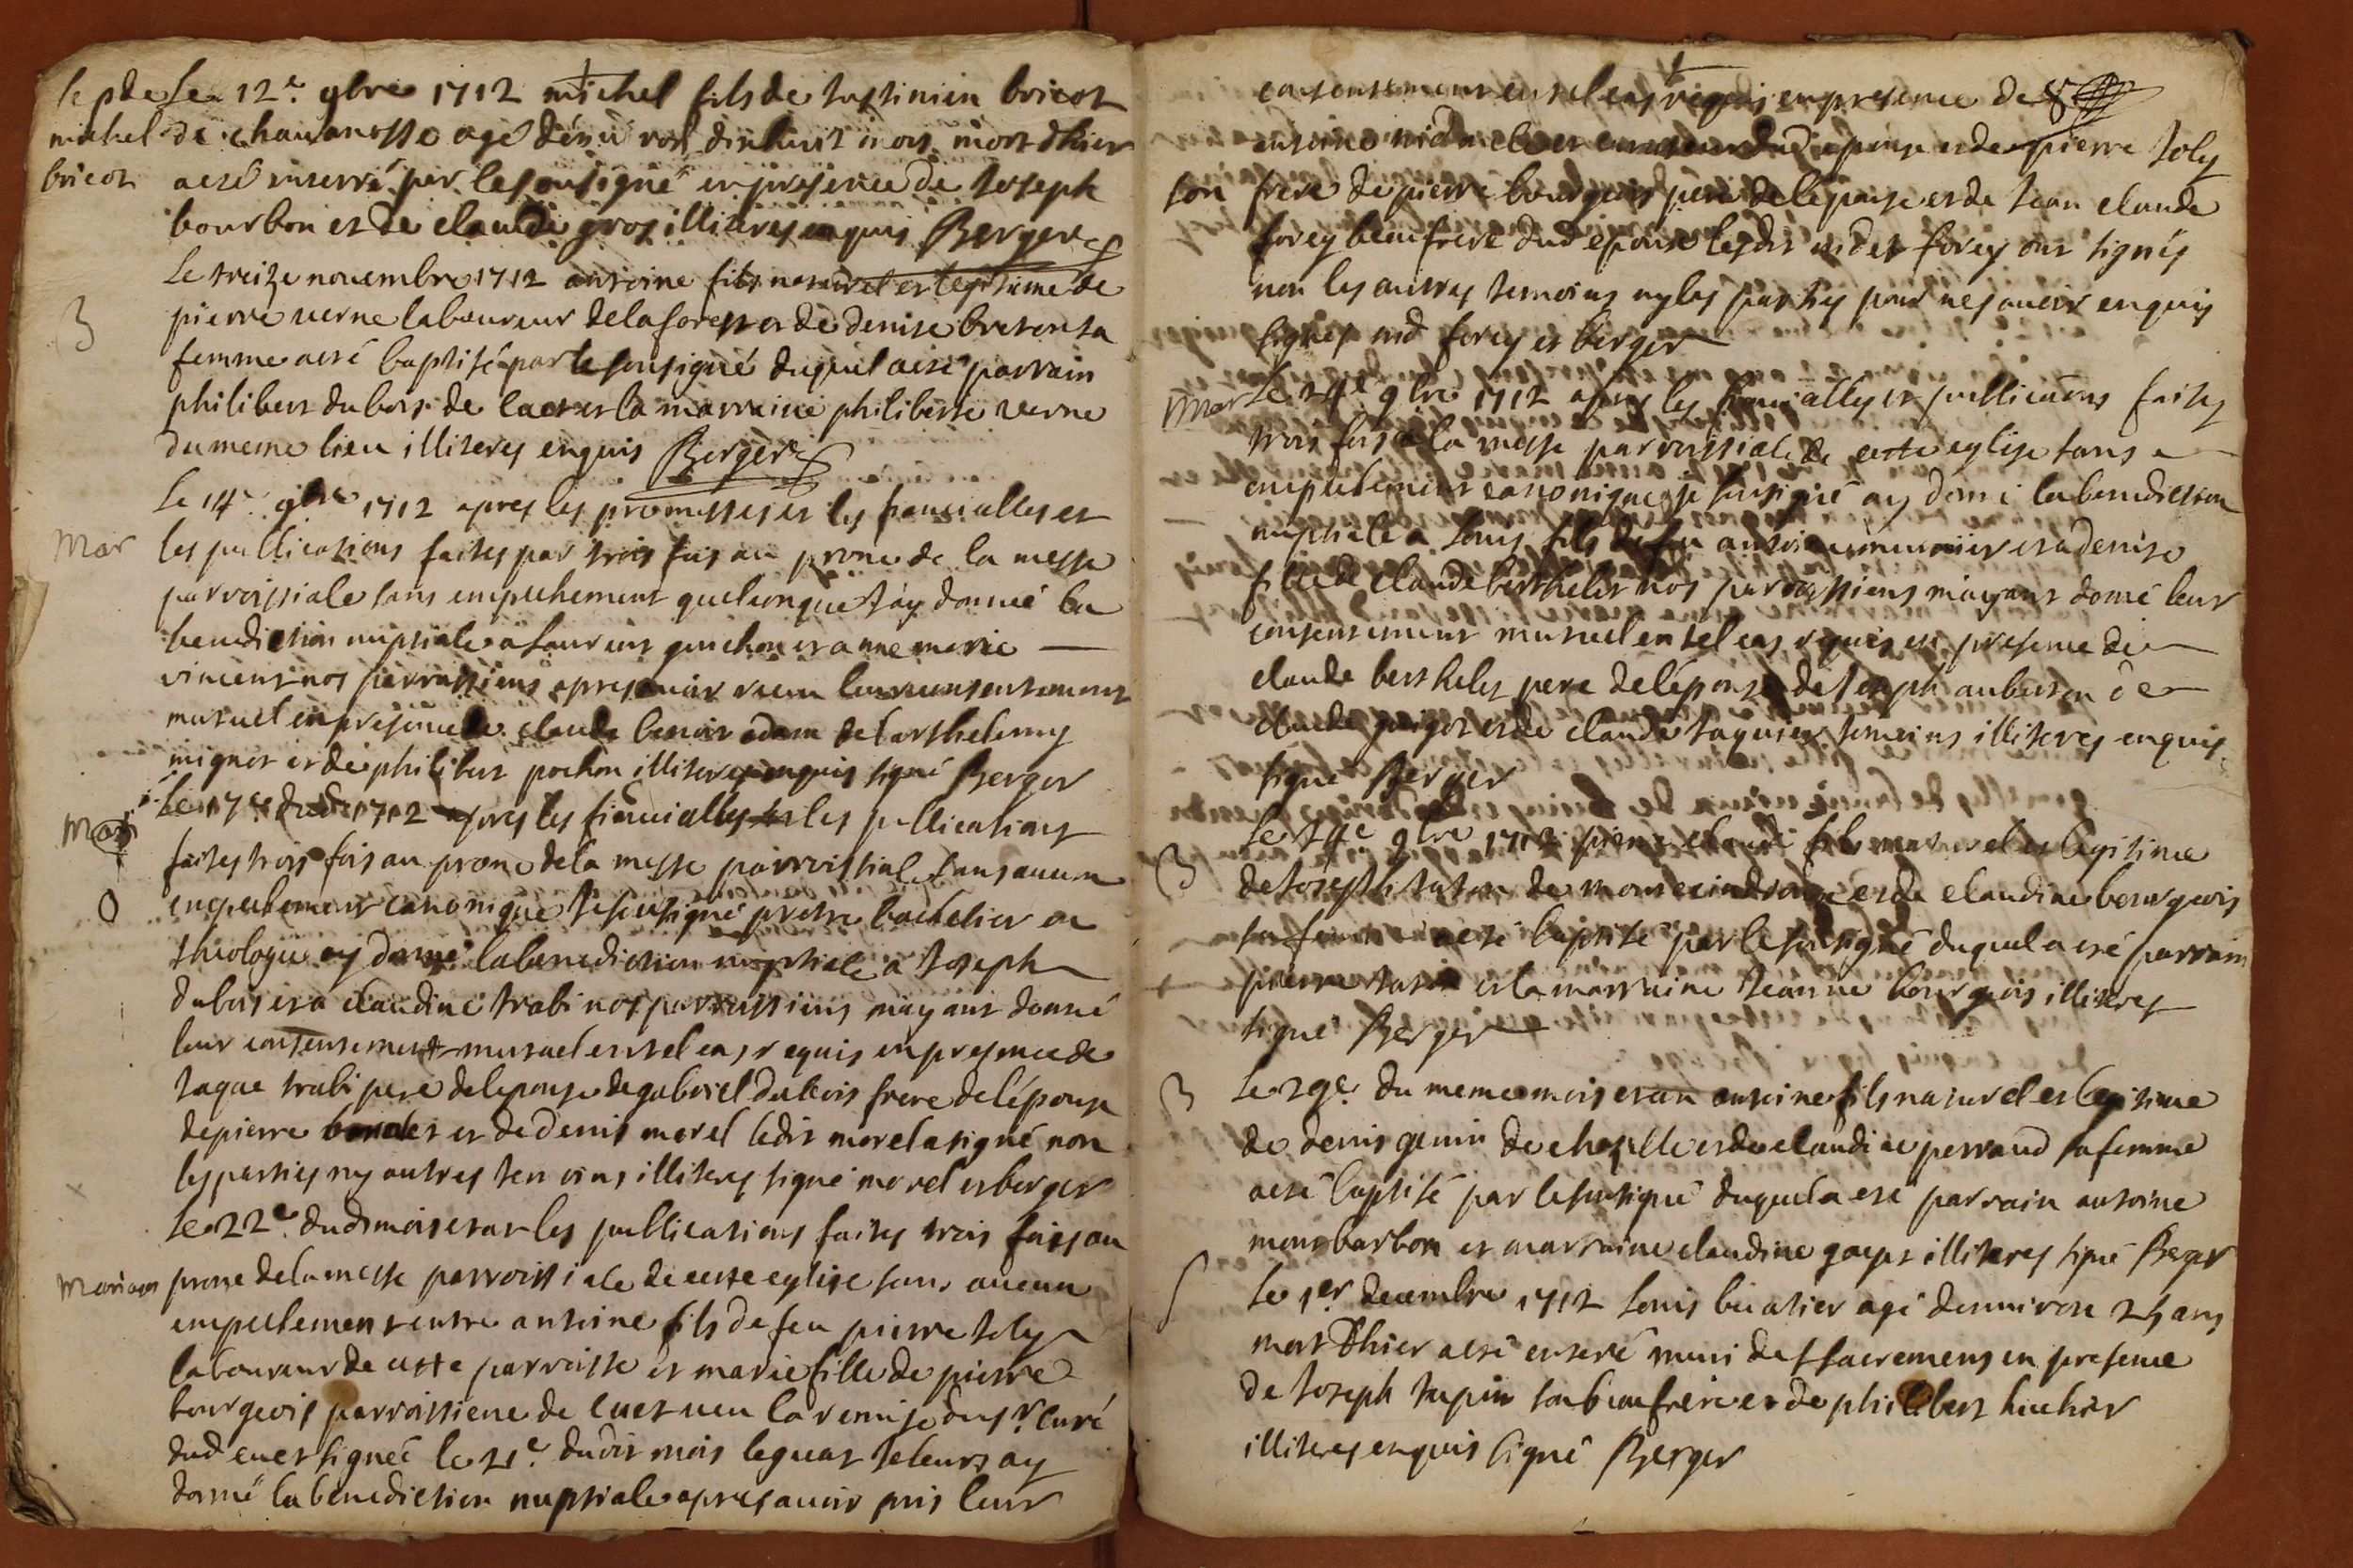 sep de Le 12e 9bre 1712 michel fils de Justinien bricot
michel de chauanosse agé dénuiron dixhuit mois mort d'hier
bricot a esté enterré par le sousigné en presence de Joseph
bourbon et de claude gros illiteres enquis Berger
Le treize nouembre 1712 antoine fils naturel et legitime de
B pierre uerne laboureur de la forest et de denise breton sa
femme a esté baptisé par le sousigné duquel a esté parrain
philibert dubois de cuet et la marraine philiberte uerne
du meme lieu illiteres enquis Berger
Le 14e 9bre 1712 apres les promesses et les fiancialles et
Mar les publications faites par trois fois au prone de la messe
parroissiale sans empechement quelconque J'ay donné la
benediction nuptiale a laurent guichon et a anne marie
uincent nos parrossiens apres auoir receu leur consentement
mutuel en presence de claude benoit adam de barthelemy
mignot et de philibert pochon illiteres enquis signé Berger
Mar Le 17e dudit 1712 apres les fiancialles et les publications
faites trois fois au prone de la messe parroissiale sans aucun
empechement canonique Je sousigné pretre bachelier en
theologie ay donné la benediction nuptiale a Joseph
dubois et a claudine trabi nos parrossiens m'ayant donné
leur consentement mutuel en tel cas requis en presence de
Jaque trabi pere de l'epouse de gabriel dubois frere de l'époux
de pierre et de denis morel ledit morel a signé non
les parties ny autres temoins illiteres signé morel et berger
Le 22e dud mois et an les publications faites trois fois au
Mariage prone de la messe parroissiale de ceste eglise sans aucun
empechement entre antoine fils de feu pierre Joly
laboureur de ceste parroisse et marie fille de pierre
bourgeois parroissiene de cuet ueu la remise du sr curé
dud cuet signée le 21e dudit mois leguat Je leurs ay
donné la benediction nuptiale apres auoir pris leur
consentement en tel cas requis en presence de
antoine nid dud epoux et de pierre Joly
son frere de pierre bourgeois pere de l'epouse et de Jean claude
forey beaufrere dud epoux lesdits nid et forey ont signés
non les autres temoins ny les parties pour ne sauoir enquis
signés nid forey et berger
Mar Le 24e 9bre 1712 apres les fiancialles et publications faites
trois fois a la messe parroissiale de ceste eglise sans
empechement canonique Je sousigné ay donné la benediction
nuptiale a Louis fils de feu antoine munnier et a denise
fille de claude berthelet nos parroissiens m'ayant donné leur
consentement mutuel en tel cas requis en presence de
claude berthelet pere de l'épouse de Joseph auberson de
claude et de claude temoins illiteres enquis
signé Berger
Le 24e 9bre 1712 pierre claude fils naturel et legitime
B de Joseph de et de claudine bourgeois
sa femme a esté baptisé par le sousigné duquel a esté parrain
pierre et la marraine Jeanne bourgeois illiteres
signé Berger
B Le 29e du meme mois et an antoine fils naturel et legitime
de denis genin de et de claudine perraud sa femme
a esté baptisé par le sousigné duquel a esté parrain antoine
monbarbon et marraine claudine illiteres signé Berger
S Le 1er decembre 1712 Louis bicatier agé denuiron 25 ans
mort d'hier a esté enterré muni des sacremens en presence
de Joseph son beaufrere et de philibert
illiteres enquis signé Berger